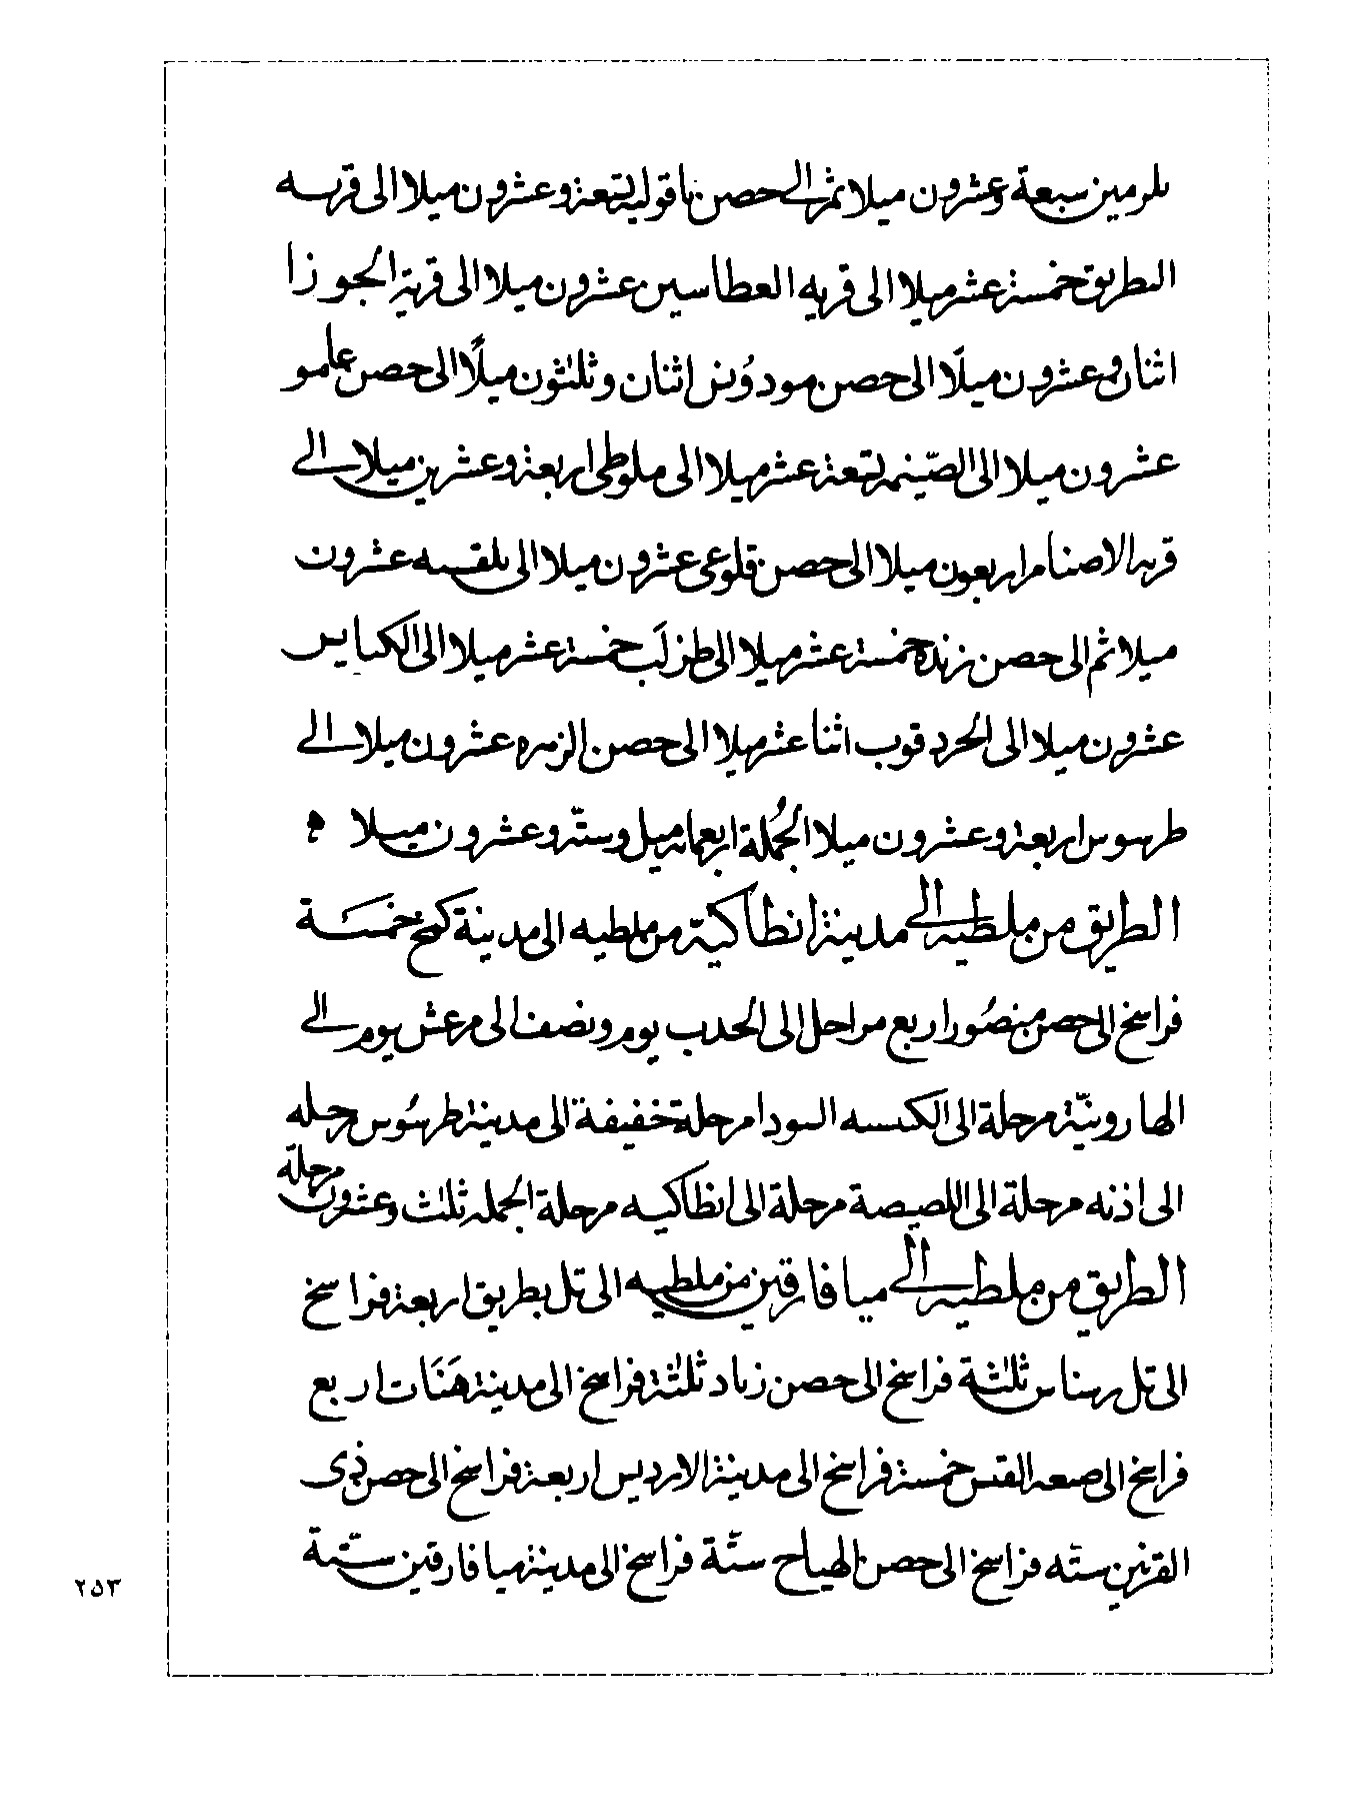 ىلرمين سبعة وعشرون ميلا ثم الى حصن ناقولية تسعة وعشرون ميلا الى قريه
الطريق خمسة عشر ميلا الى قريه العطاسين عشرون ميلا الى قرية الجوزا
اثنان وعشرون ميلًا الى حصن مودوُنس اثنان وثلثون ميلًا الى حصن علمو
عشرون ميلا الى الصّينيه تسعة عشر ميلا الى ملوطى اربعة وعشرين ميلا الى
قريه الاصنام اربعون ميلا الى حصن قلوعى عشرون ميلا الى بلقسه عشرون
ميلا ثم الى حصن زنده خمسة عشر ميلا الى طزلَب خمسة عشر ميلا الى الكنايس
عشرون ميلا الى الحردقوب اثنا عشر ميلا الى حصن الزمره عشرون ميلا الى
طرسوس اربعة وعشرون ميلا الجُملة اربعماىه ميل وستّه وعشرون ميلا ه
الطريق من ملطيه الى مدينة انطاكيّه من ملطيه الى مدينة كمخ خمسَة
فراسخ الى حصن منصُور اربع مراحل الى الحدب يوم ونصف الى مرعش يوم الى
الهارونيّة مرحلة الى الكنيسه السودا مرحلة خفيفة الى مدينة طرسُوس مرحله
الى اذنه مرحلة الى المصيصة مرحلة الى انطاكيه مرحلة الجمله ثلث وعشرون مرحلة
الطريق من ملطيه الى ميافارقين من ملطيه الى تل بطريق اربعة فراسخ
الى تل رسناس ثلثة فراسخ الى حصن زياد ثلثة فراسخ الى مدينة هَنَات اربع
فراسخ الى صعه القس خمسة فراسخ الى مدينة الارديس اربعة فراسخ الى حصن ذى
القرنين ستّه فراسخ الى حصن الهياح ستّة فراسخ الى مدينة ميافارقين ستّة
٢٥٣